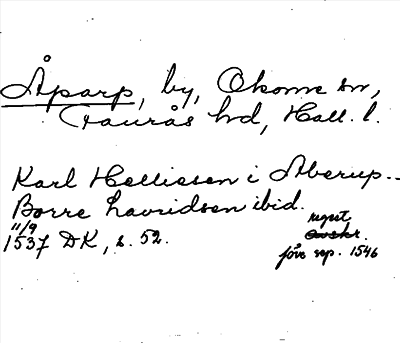 Åparp, by, Okome sn,
Faurås hd, Hall. l.
Karl Hellissen i Aberup.
Børre Lavridsen ibid.
11/9
1537 DK, s. 52.
regest
avskr.
före sep. 1546